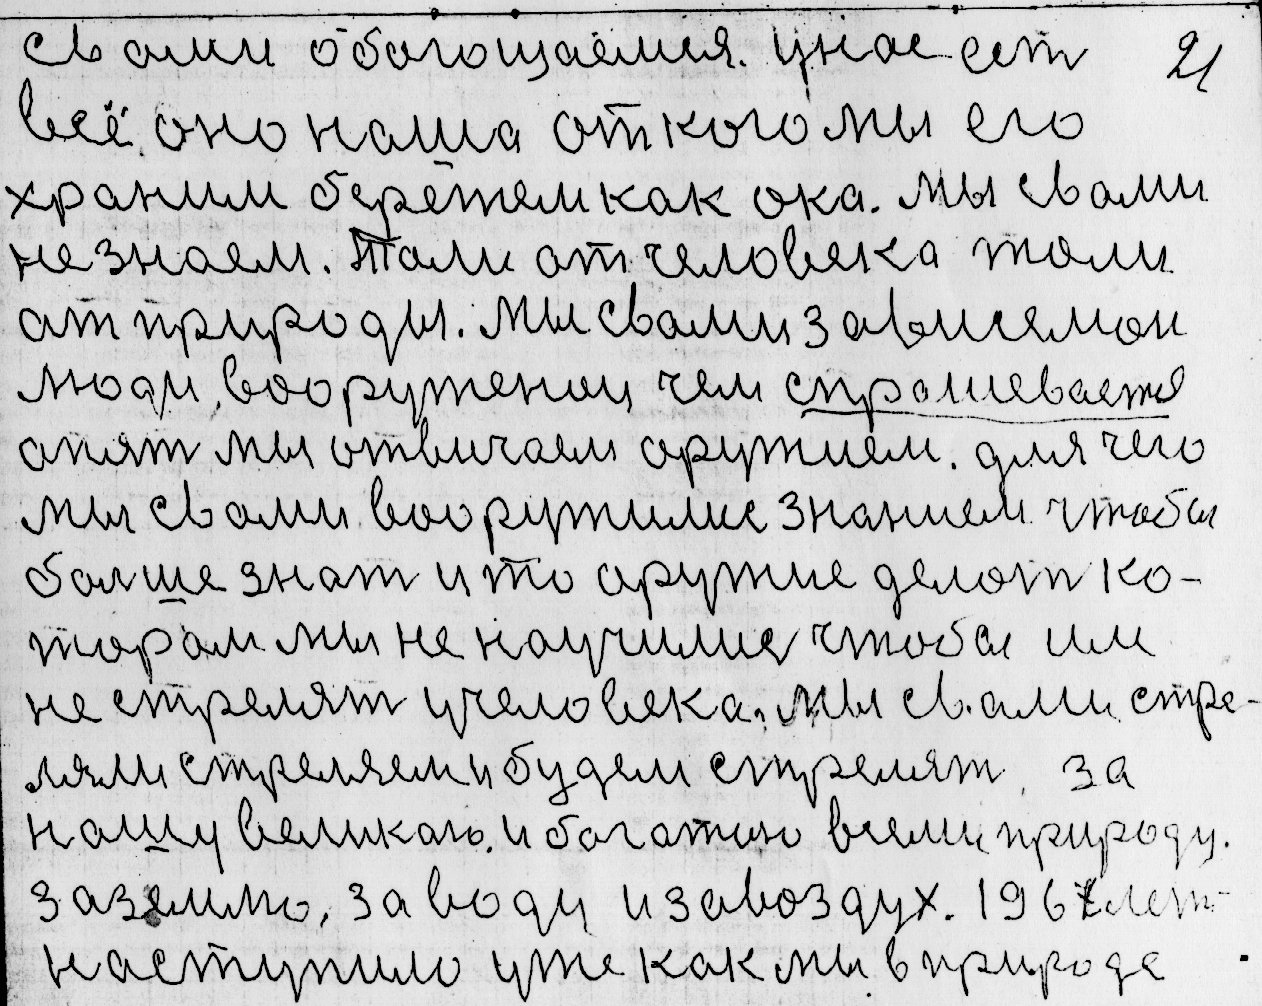 свами обогощаемся. унас ест 21
всё, оно наша откого мы его
храним берётем как ока. мы свами
не знаем. Тали от человека толи
от природы. мы свами зависемои
люди, вооружении чем спрошеваете
опят мы отвичаем оружием. для чего
мы свами вооружилис знанием чтобы
болше знат и то оружие делат ко-
торам мы не научимся чтобы им
не стрелят учеловека. мы свами стре-
ляли стреляем и будем стрелят за
нашу великаю. и богатию всеми природу.
за землю, за воду и за воздух. 1967 лет
наступило уже как мы в природе